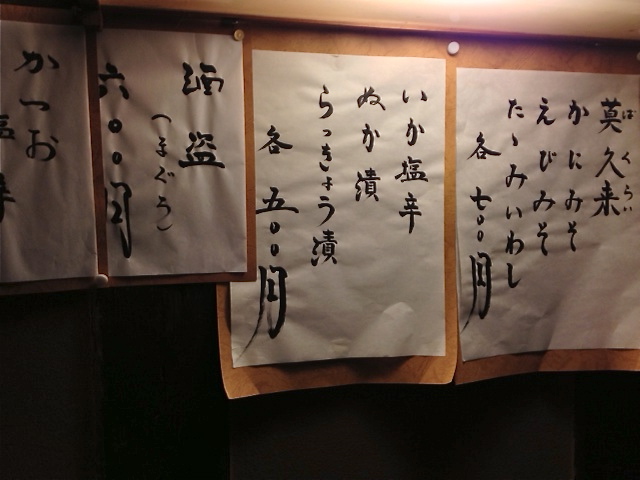 莫久来
ばくらい
かにみそ
えびみそ
たゝみいわし
各 七〇〇円
いか塩辛
ぬか漬
らっきょう漬
各 五〇〇円
酒盗
(まぐろ)
六〇〇円
かつお
塩辛